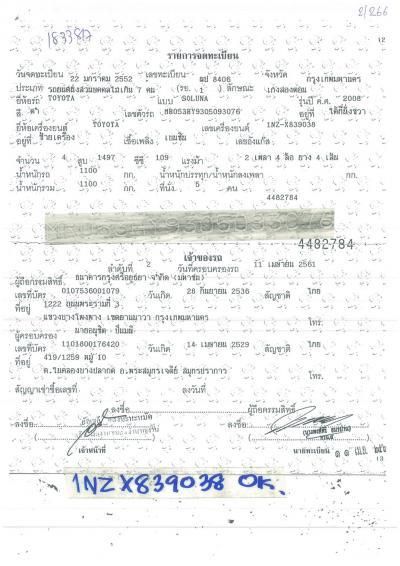 183387
2/266
12
รายการจดทะเบียน
วันจดทะเบียน 22 มกราคม 2552 เลขทะเบียน 8406 จังหวัด กรุงเทพมหานคร
ประเภท รถยนต์นั่งส่วนบุคคลไม่เกิน 7 คน (รย. 1) ลักษณะ เก๋งสองตอน
ยี่ห้อรถ TOYOTA แบบ SOLUNA รุ่นปี ค.ศ. 2008
สี ดำ เลขตัวรถ MR053BY9305093076 อยู่ที่
ยี่ห้อเครื่องยนต์ TOYOTA เลขเครื่องยนต์ 1NZ-X839038
อยู่ที่ ซ้ายเครื่อง เชื้อเพลิง เบนซิน เลขถังแก๊ส
จำนวน 4 สูบ 1497 ซีซี 109 แรงม้า 2 เพลา 4 ล้อ ยาง 4 เส้น
น้ำหนักรถ 1100 กก. น้ำหนักบรรทุก/น้ำหนักลงเพลา กก.
น้ำหนักรวม 1100 กก. ที่นั่ง 5 คน
4482784
4482784
เจ้าของรถ
ลำดับที่ 2 วันที่ครอบครองรถ 11 เมษายน 2561
ผู้ถือกรรมสิทธิ์ ธนาคารกรุงศรีอยุธยา จำกัด (มหาชน)
เลขที่บัตร 0107536001079 วันเกิด 28 กันยายน 2536 สัญชาติ ไทย
ที่อยู่ 1222 ถนนพระรามที่ 3
แขวงบางโพงพาง เขตยานนาวา กรุงเทพมหานคร โทร.
ผู้ครอบครอง
เลขที่บัตร 1101800176420 วันเกิด 14 เมษายน 2529 สัญชาติ ไทย
ที่อยู่ 419/1259 หมู่ 10
ต.ในคลองบางปลากด อ.พระสมุทรเจดีย์ สมุทรปราการ โทร.
สัญญาเช่าซื้อเลขที่ ลงวันที่
ลงชื่อ ผู้ถือกรรมสิทธิ์
ลงชื่อ ลงชื่อ
เจ้าหน้าที่ นายทะเบียน ๑๑ เม.ย.
13
1NZ X839038 OK.